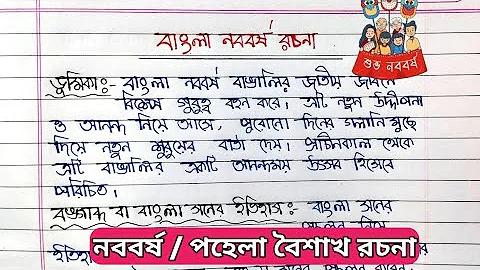 বাংলা নববর্ষ রচনা
শুভ নববর্ষ
ভূমিকা: বাংলা নববর্ষ বাঙালির জাতীয় জীবনে
বিশেষ গুরুত্ব বহন করে। এটি নতুন উদ্দীপনা
ও আনন্দ নিয়ে আসে, পুরোনো দিনের গ্লানি মুছে
দিয়ে নতুন শুরুয়ের বার্তা দেয়। প্রাচীনকাল থেকে
এটি বাঙালির একটি আনন্দময় উত্সব হিসেবে
পরিচিত।
বঙ্গাব্দ বা বাংলা সনের ইতিহাস: বাংলা সনের
নববর্ষ / পহেলা বৈশাখ রচনা